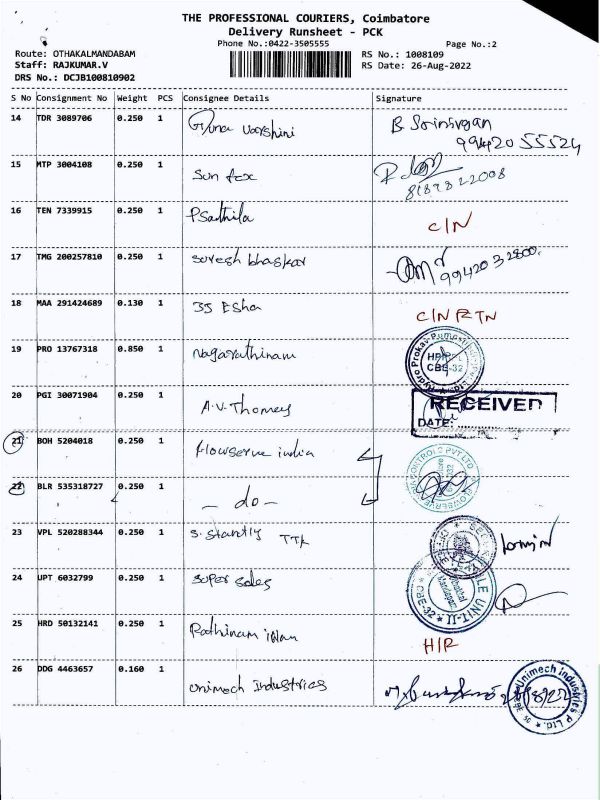 THE PROFESSIONAL COURIERS, Coimbatore
Delivery Runsheet - PCK
Phone No.:0422-3505555
Page No.:2
Route: OTHAKALMANDABAM
RS No.: 1008109
Staff: RAJKUMAR.V
RS Date: 26-Aug-2022
DRS No.: DCJB100810902
S No Consignment No Weight PCS Consignee Details Signature
14 TDR 3089706 0.250 1 Guna Varshini B Srinivgan
99420 55524
15 MTP 3004108 0.250 1 Sun fox
16 TEN 7339915 0.250 1 P Sathila C/N
17 TMG 200257810 0.250 1 Suresh bhaskar 99420 32800.
18 MAA 291424689 0.130 1 JJ Esha C/N RTN
19 PRO 13767318 0.850 1 Nagarathinam
HPIPL
CBE-32
20 PGI 30071904 0.250 1 A.V. Thomas
RECEIVED
DATE:
21 BOH 5204018 0.250 1 Flowserve india
22 BLR 535318727 0.250 1 - do -
23 VPL 520288344 0.250 1 S. Stantly TTK
24 UPT 6032799 0.250 1 Super Sales
CBE-32 UNIT-II
25 HRD 50132141 0.250 1 Rathinam H/R
26 DDG 4463657 0.160 1 Unimech Industries
Unimech industries P Ltd.